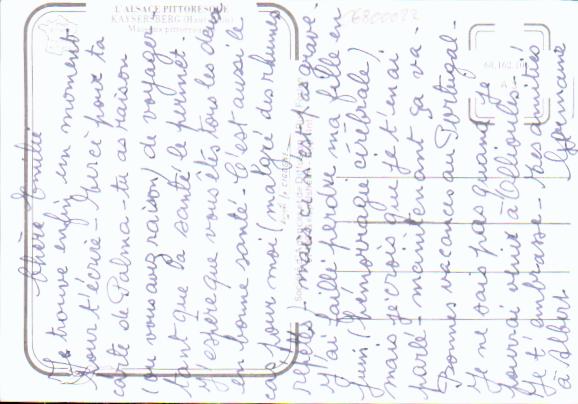 L'ALSACE PITTORESQUE
KAYSERSBERG (Haut-Rhin)
Chère Emilie
Je trouve enfin un moment
pour t'écrire - Merci pour ta
carte de Palma - tu as raison
(ou vous avez raison) de voyager
tant que la santé le permet
J'espère que vous êtes tous les deux
en bonne santé - C'est aussi le
cas pour moi (malgré des rhumes
répétés) - mais ceci n'est pas grave -
J'ai failli perdre ma fille en
Juin (hémorragie cérébrale)
mais je crois que je t'en ai
parlé - maintenant ça va -
Bonnes vacances au Portugal -
Je ne sais pas quand je
pourrai venir à Ollioules !
Je t'embrasse - mes amitiés
à Albert
Germaine